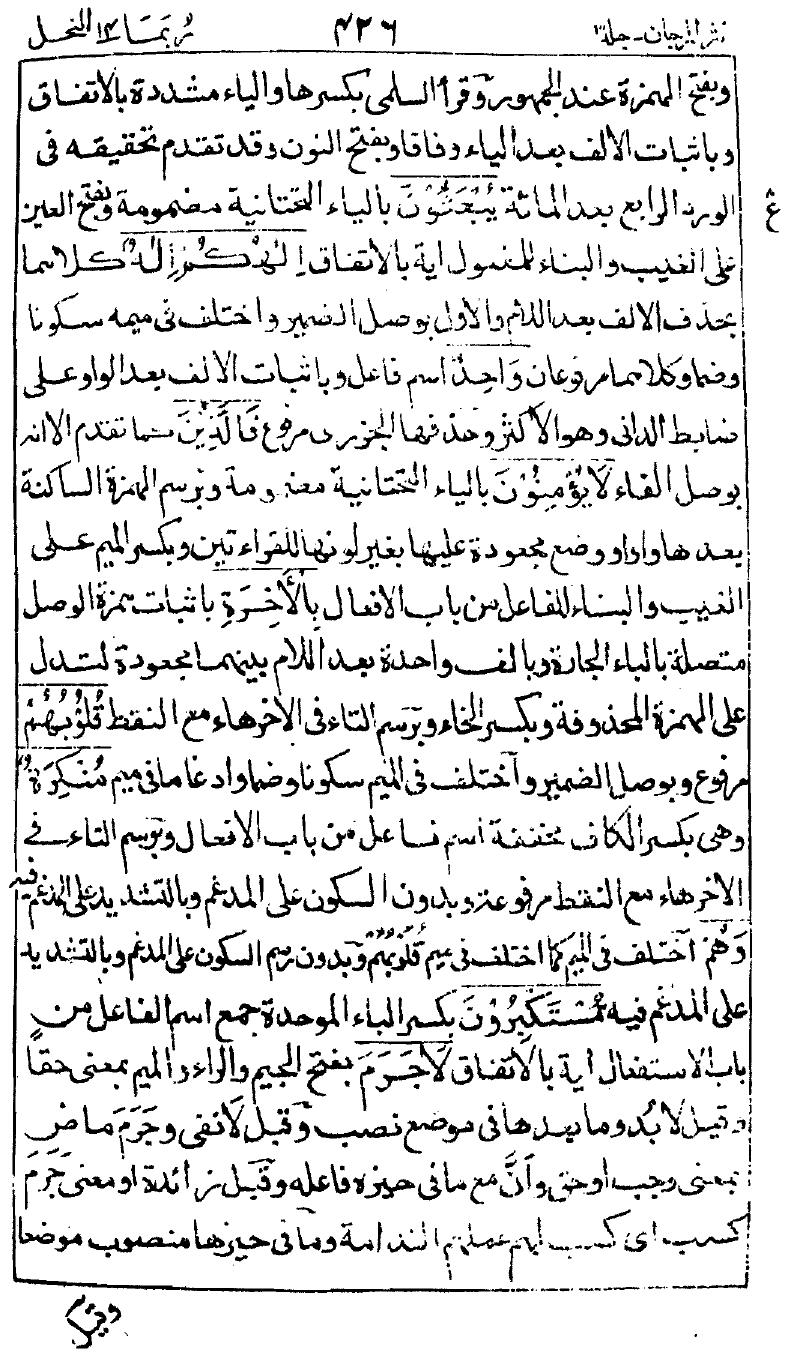 نثر المرجان - جلد ٣ ٤٢٦ ربما ١٤ النحل
وبفتح الهمزة عند الجمهور وقرأ السلمى بكسرها والياء مشددة بالاتفاق
وباثبات الالف بعد الياء وفاقا وبفتح النون وقد تقدم تحقيقه فى
الورد الرابع بعد المائة يُبْعَثُوْنَ بالياء التحتانية مضمومة وبفتح العين
ع
على الغيب والبناء للمفعول اية بالاتفاق اِلٰهُكُمْ اِلٰهٌ كلاهما
بحذف الالف بعد اللام والاول بوصل الضمير واختلف فى ميمه سكونا
وضما وكلاهما مرفوعان وَاحِدٌ اسم فاعل وباثبات الالف بعد الواو على
ضابط الدانى وهو الاكثر وحذفها الجزرى مرفوع فَالَّذِيْنَ كما تقدم الا انه
بوصل الفاء لَا يُؤْمِنُوْنَ بالياء التحتانية مضمومة وبرسم الهمزة الساكنة
بعدها واوا ووضع مجعودة عليها بغير لونها للقراءتين وبكسر الميم على
الغيب والبناء للفاعل من باب الافعال بِالْاٰخِرَةِ باثبات همزة الوصل
متصلة بالباء الجارة وبالف واحدة بعد اللام بينهما مجعودة لتدل
على الهمزة المحذوفة وبكسر الخاء وبرسم التاء فى الاخر هاء مع النقط قُلُوْبُهُمْ
مرفوع وبوصل الضمير واختلف فى الميم سكونا وضما وادغاما فى ميم مُنْكِرَةٌ
وهى بكسر الكاف مخففة اسم فاعل من باب الافعال وبرسم التاء فى
الاخر هاء مع النقط مرفوعة وبدون السكون على المدغم وبالتشديد على المدغم فيه
وَهُمْ اختلف فى الميم كما اختلف فى ميم قُلُوْبُهُمْ وبدون رسم السكون على المدغم وبالتشديد
على المدغم فيه مُّسْتَكْبِرُوْنَ بكسر الباء الموحدة جمع اسم الفاعل من
باب الاستفعال اية بالاتفاق لَاجَرَمَ بفتح الجيم والراء والميم بمعنى حقا
وقيل لا بُدّ وما بعدها فى موضع نصب وقيل لَا نفى وجَرَمَ ماض
بمعنى وجب او حق وأنَّ مع ما فى حيزه فاعله وقيل زائدة او معنى جَرَمَ
كسب اى كسب لهم عملهم الندامة وما فى حيزها منصوب موضعا
وقيل